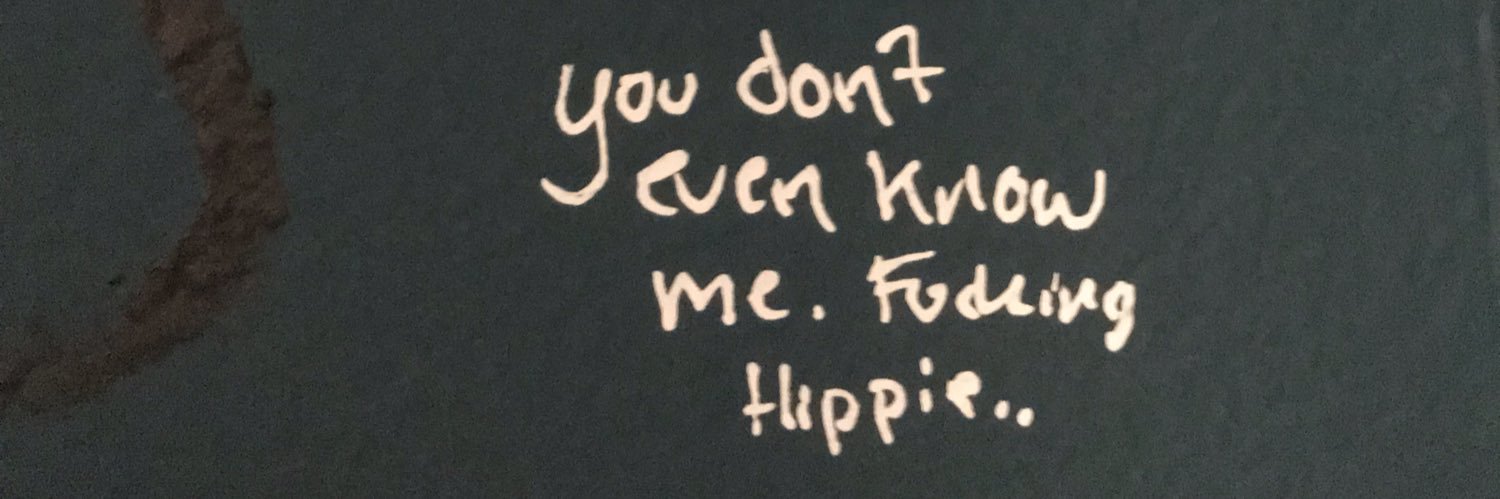 you don't
even know
me. Fucking
Hippie..